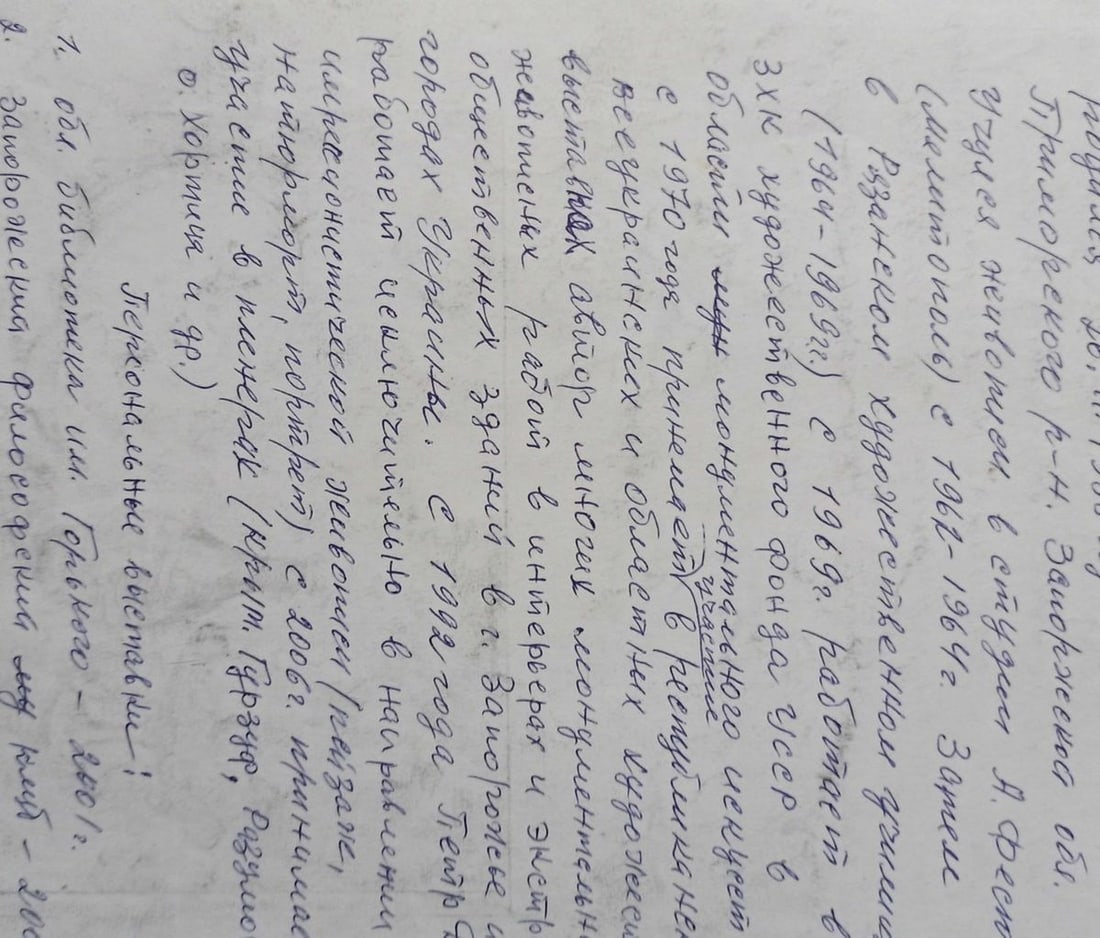 родился
Приморского р-н. Запоржская обл.
Учился живописи в студии А. Фест
(Мелитополь) с 1962-1964г. Затем
в Рязанском художественном училищ
(1964-1969гг.) с 1969г. работает в
ЗХК художественного фонда УССР в
области монументального искусст
с 1970 года принемает участие в республикане
всеукраинских и областных художест
выставках автор многих монументальн
живописных работ в интерьерах и экстр
общественных зданий в г. Запорожье и
городах Украины. С 1992 года Петр
работает исключительно в направлении
импрессионистической живописи (пейзаж,
натюрморт, портрет) с 2006г. принимае
участие в пленерах (Крым. Гурзуф,
о. Хортица и др.)
Персональные выставки:
1. обл. библиотека им. Горького - 2001г.
2. Запорожский философский клуб - 200